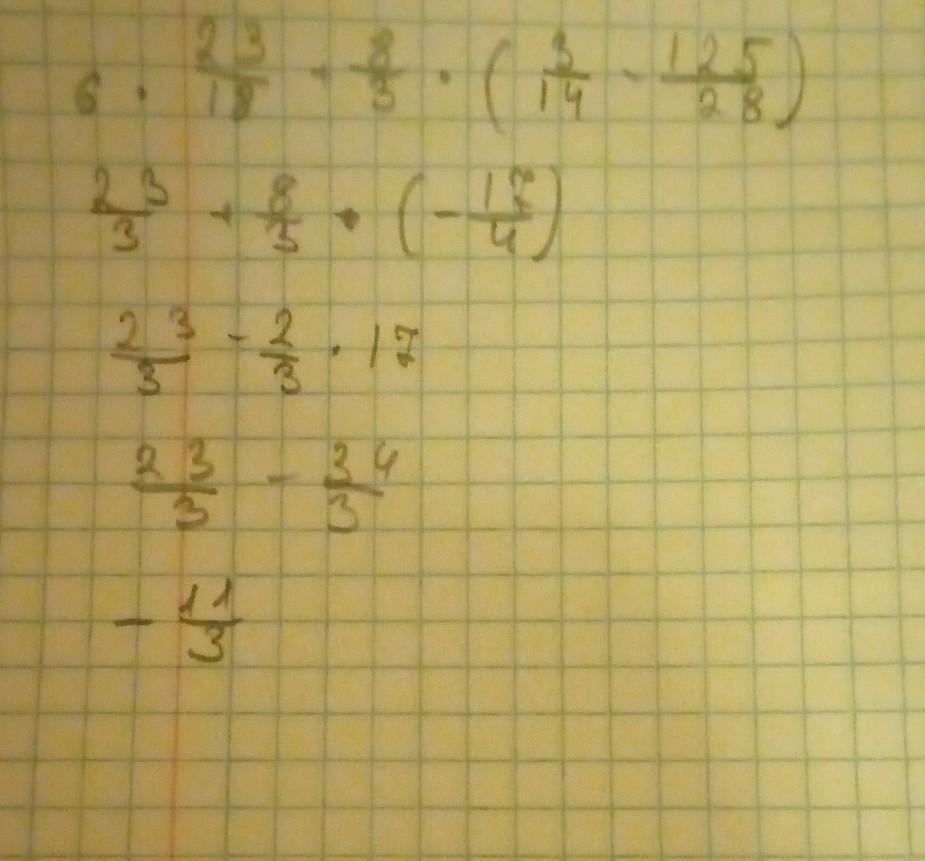 6 · 23/18 + 8/3 · (3/14 - 125/28)
23/3 + 8/3 · (-17/4)
23/3 - 2/3 · 17
23/3 - 34/3
- 11/3